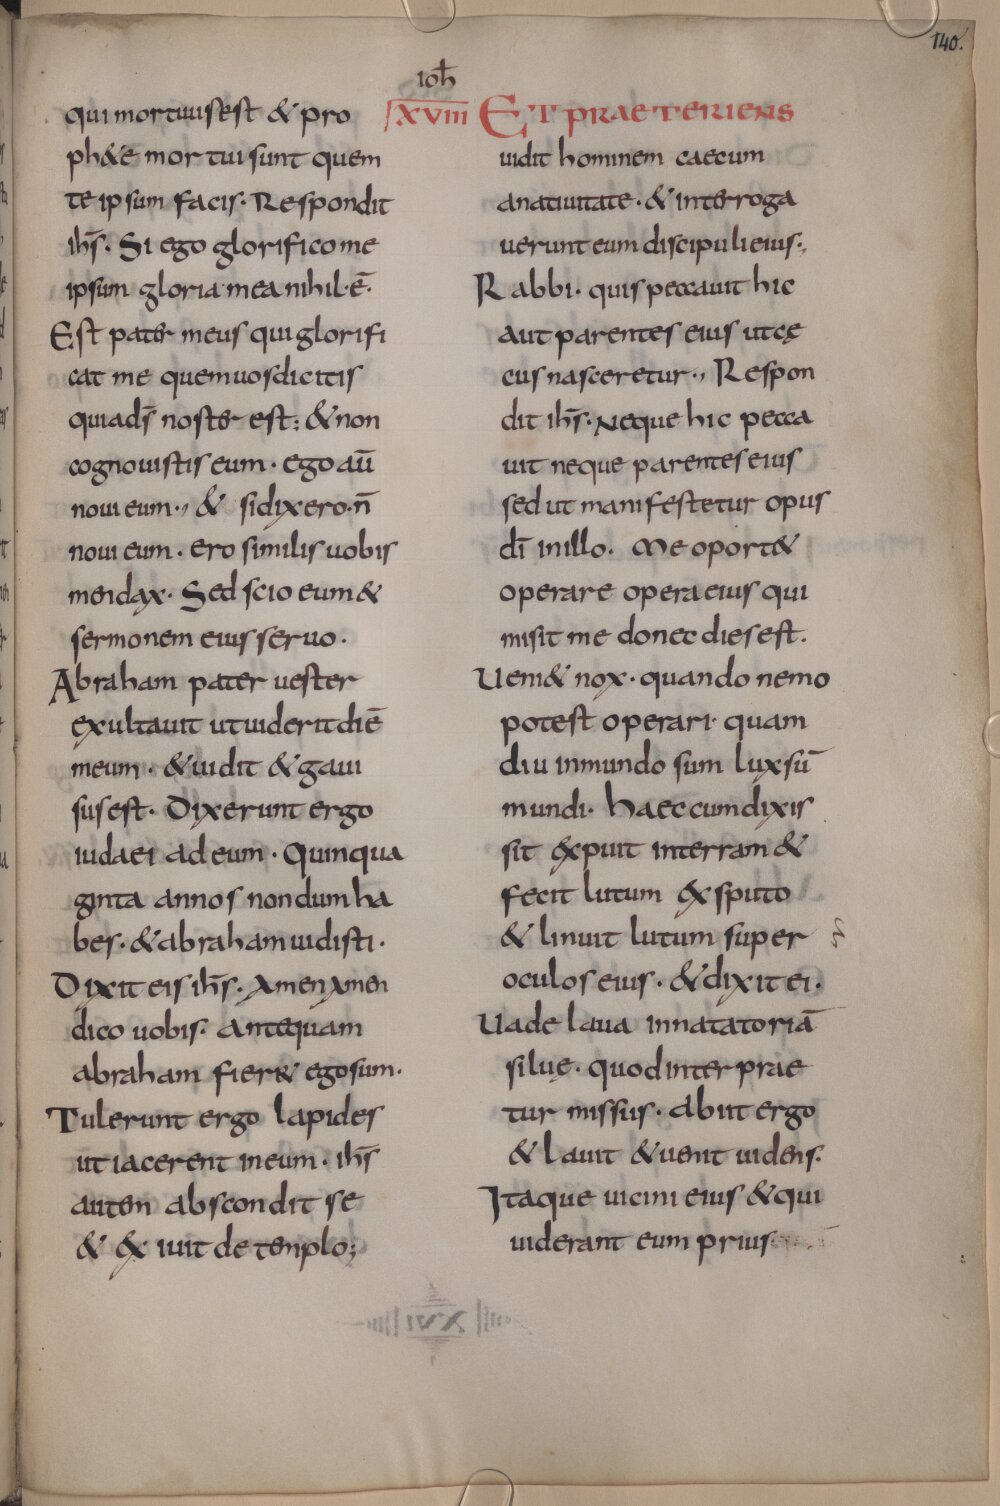 140.
ioħ
qui mortuus est & pro
ph&e mortui sunt quem
te ipsum facis· Respondit
ihs̄· Si ego glorifico me
ipsum gloria mea nihil·ē·
Est pater meus qui glorifi
cat me quem uos dicitis
quia ds̄ noster est: & non
cognouistis eum· ego aū
noui eum·, & si dixero·n̄
noui eum· ero similis uobis
mendax· Sed scio eum &
sermonem eius seruo·
Abraham pater uester
exultauit ut uiderit diē
meum· & uidit & gaui
sus est· Dixerunt ergo
iudaei ad eum· Quinqua
ginta annos nondum ha
bes· & abraham uidisti·
Dixit eis ihs̄· Amen amen
dico uobis· Antequam
abraham fier& ego sum·
Tulerunt ergo lapides
ut iacerent in eum· ihs̄
autem abscondit se
& exiuit de templo;
XVIII ET PRAETERIENS
uidit hominem caecum
a natiuitate· & interroga
uerunt eum discipuli eius·,
Rabbi· quis peccauit hic
aut parentes eius ut cę
cus nasceretur·, Respon
dit ihs̄· Neque hic pecca
uit neque parentes eius
sed ut manifestetur opus
dī in illo· Me oport&
operare opera eius qui
misit me donec dies est·
Ueni& nox· quando nemo
potest operari· quam
diu in mundo sum lux sū
mundi· haec cum dixis
sit expuit in terram &
fecit lutum ex sputo
& linuit lutum super
oculos eius· & dixit ei·
Uade laua in natatoriā
siluę· quod interprae
tur missus· abiit ergo
& lauit & uenit uidens·
Itaque uicini eius & qui
uiderant eum prius
XVI